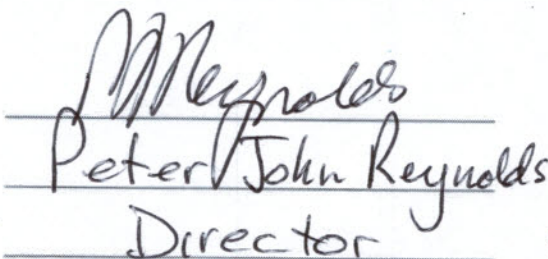 Reynolds
Peter John Reynolds
Director